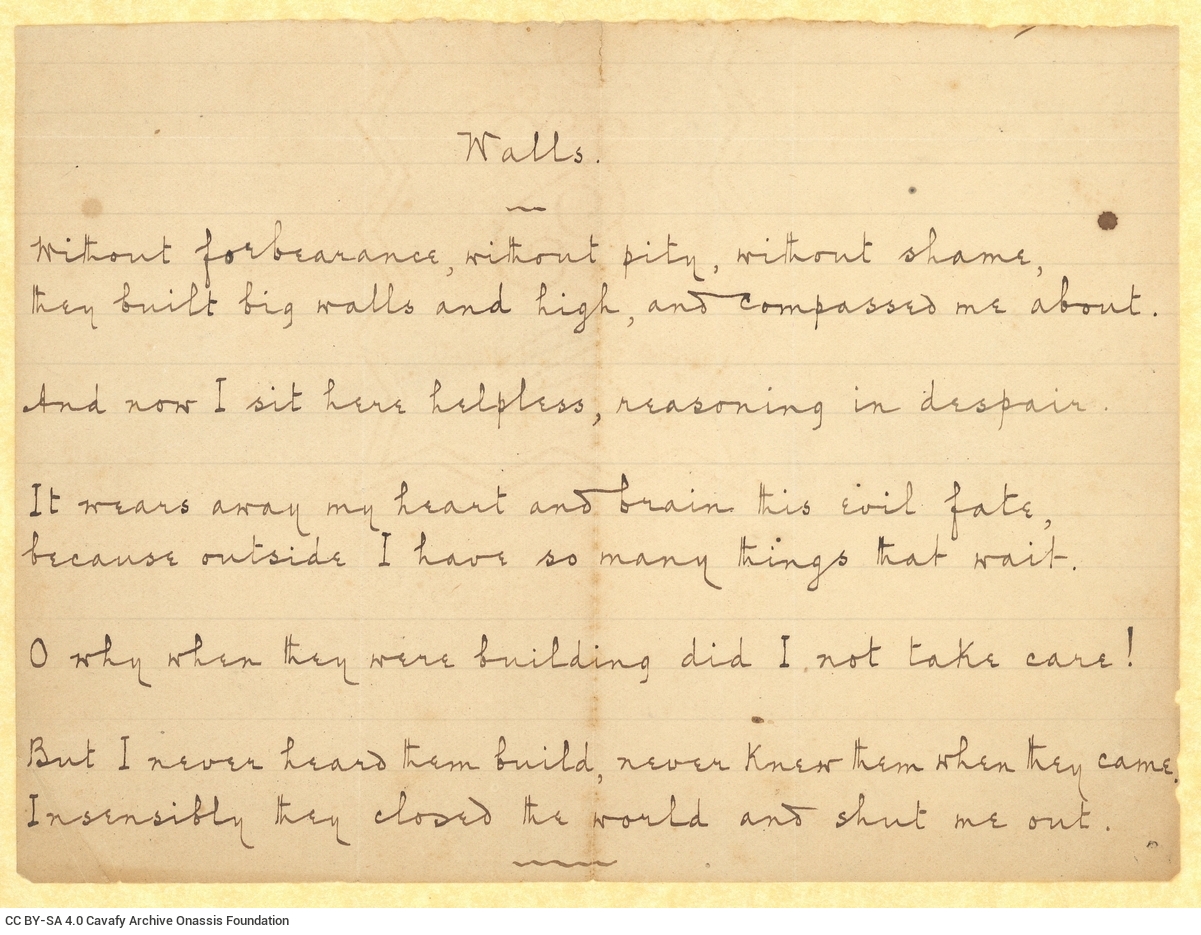 Walls.
Without forbearance, without pity, without shame,
they built big walls and high, and compassed me about.
And now I sit here helpless, reasoning in despair.
It wears away my heart and brain this evil fate,
because outside I have so many things that wait.
O why when they were building did I not take care!
But I never heard them build, never knew them when they came.
Insensibly they closed the world and shut me out.
CC BY-SA 4.0 Cavafy Archive Onassis Foundation